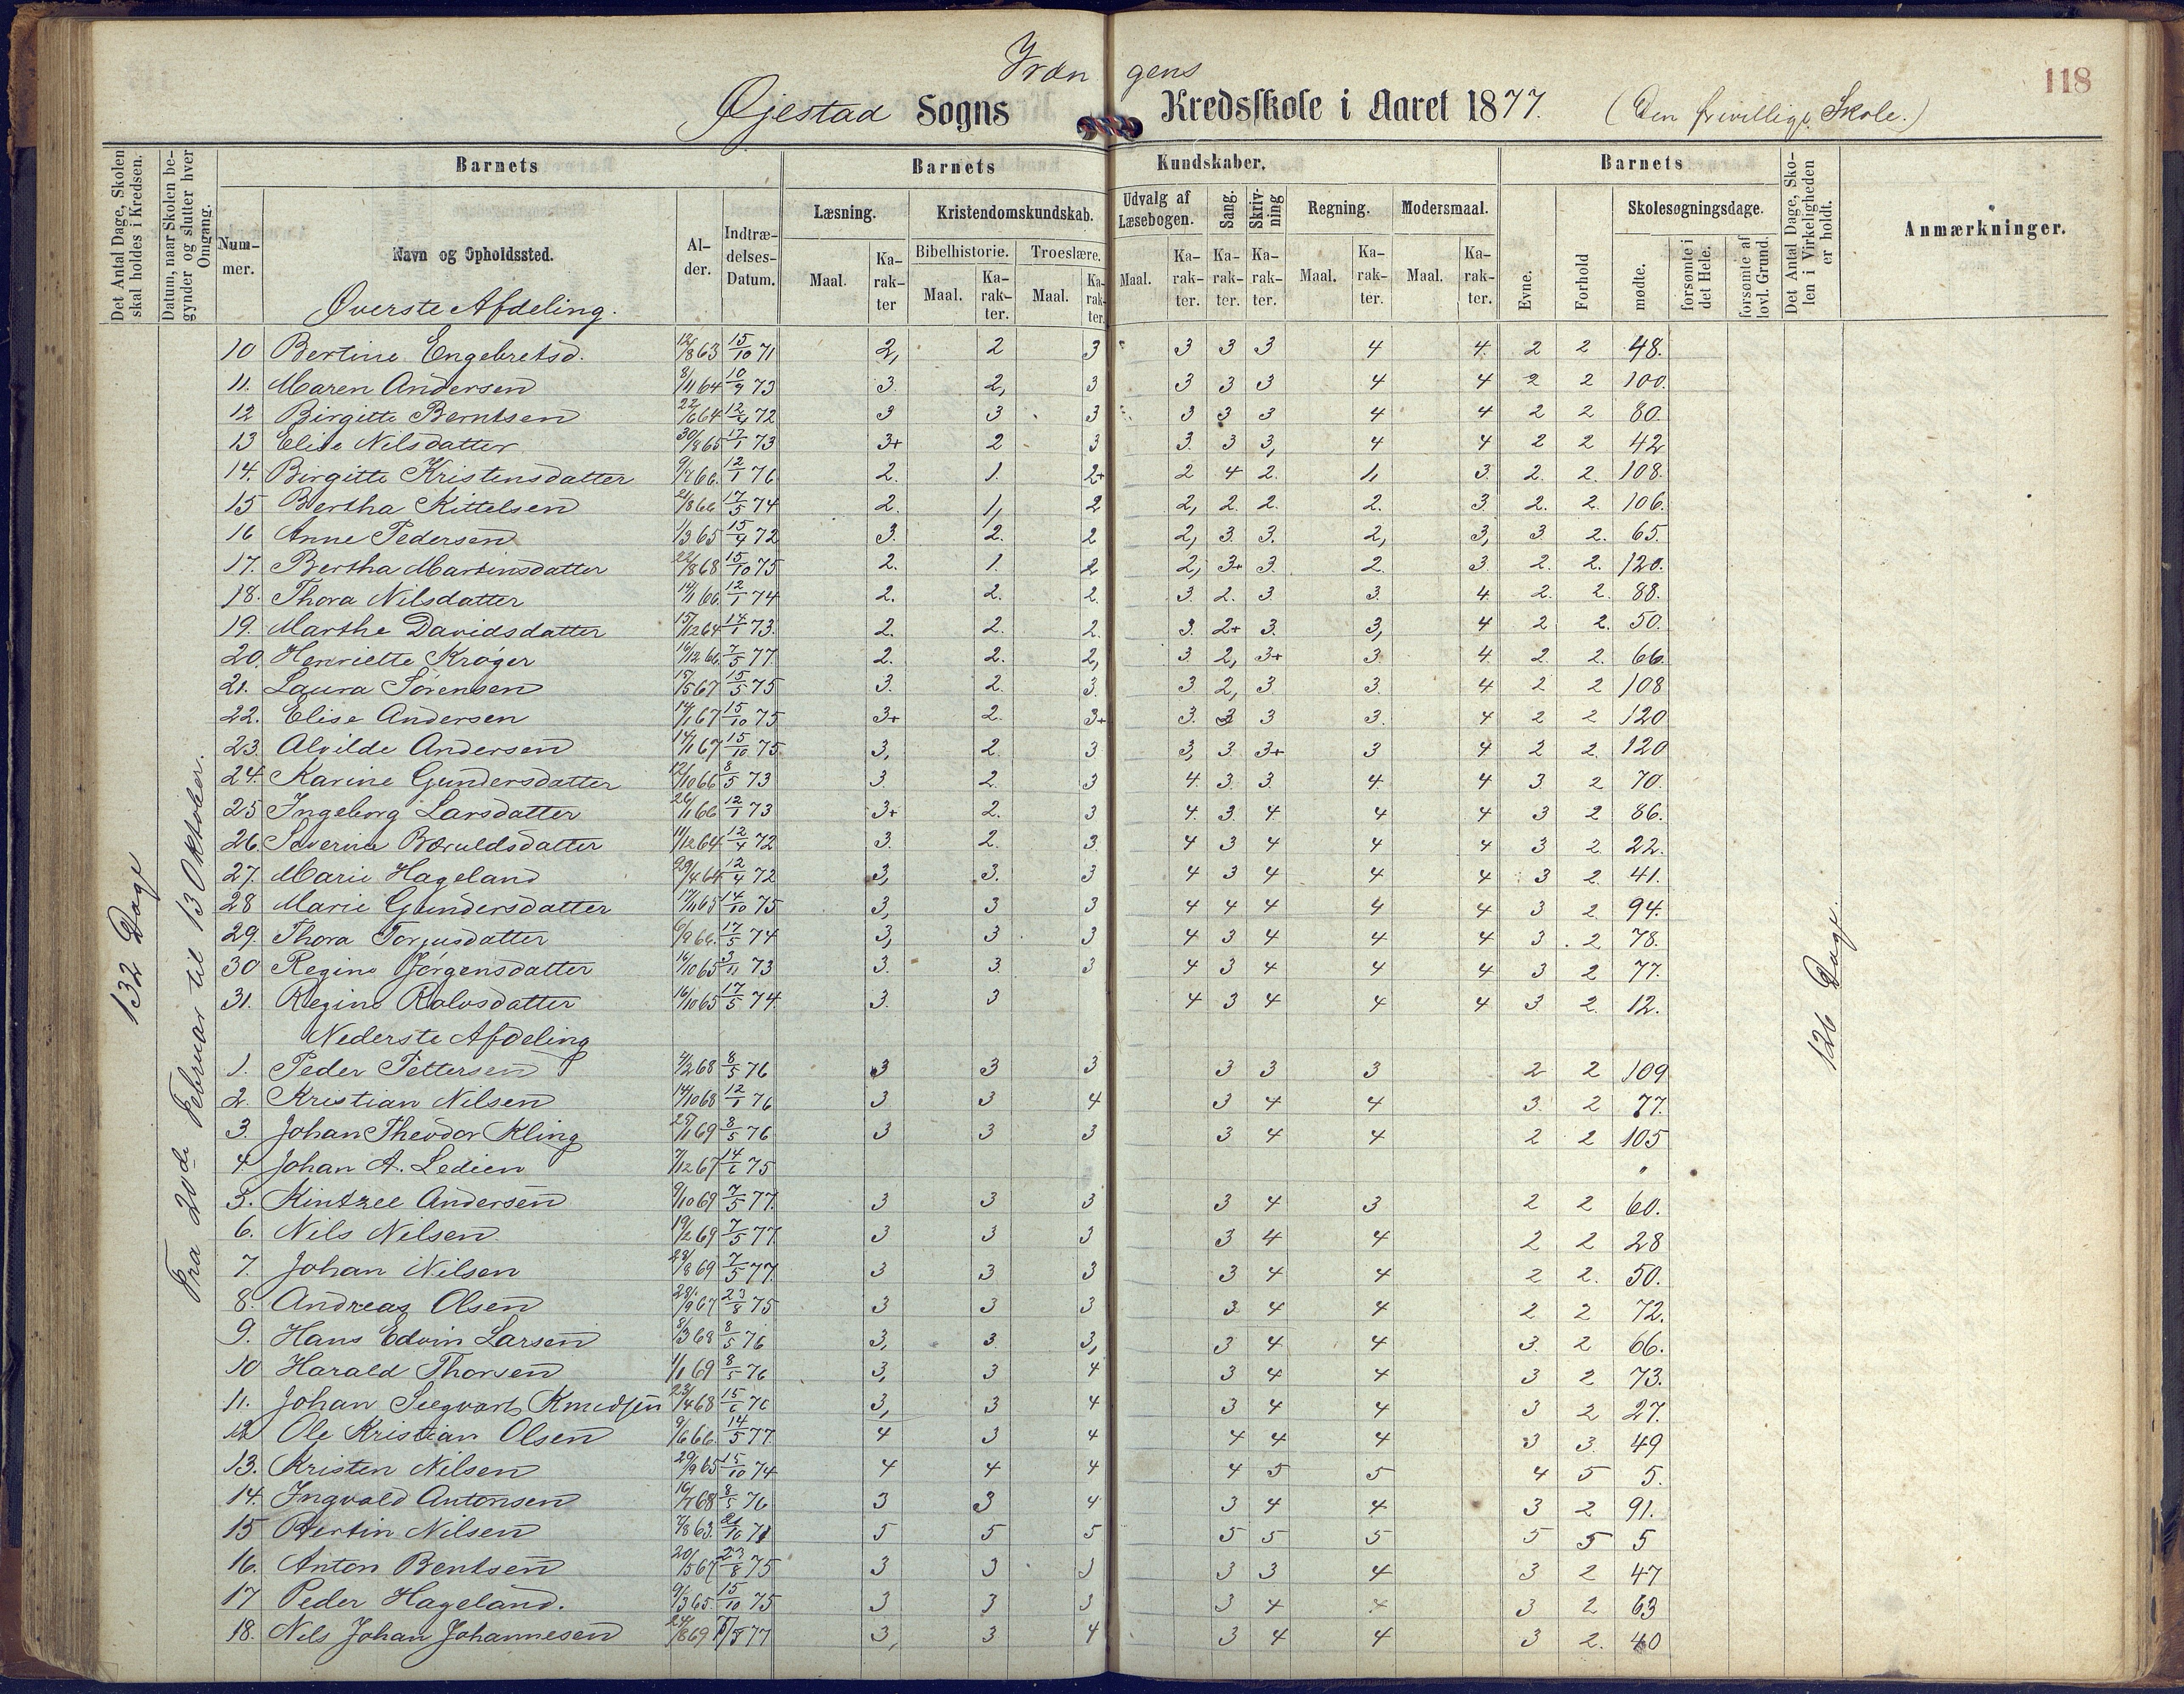 118
Vræn gens
Øjestad Sogns Kredsskole i Aaret 1877. (Den frivillige Skole.)
Det Antal Dage, Skolen skal holdes i Kredsen.
Datum, naar Skolen begynder og slutter hver Omgang.
Barnets
Barnets Kundskaber.
Barnets
Det Antal Dage, Skolen i Virkeligheden er holdt.
Anmærkninger.
Nummer.
Navn og Opholdssted.
Alder.
Indtrædelses-Datum.
Læsning.
Kristendomskundskab.
Udvalg af Læsebogen.
Sang.
Skrivning
Regning.
Modersmaal.
Evne.
Forhold
Skolesøgningsdage.
Bibelhistorie.
Troeslære.
Maal.
Karakter
Maal.
Karakter.
Maal.
Karakter.
Maal.
Karakter.
Karakter.
Karakter.
Maal.
Karakter.
Maal.
Karakter.
mødte.
forsømte i det Hele.
forsømte af lovl. Grund.
132 Dage
Fra 20de Februar til 13 Oktober.
126 Dage.
Øverste Afdeling.
10 Bertine Engebretsd. 12/8 63 15/10 71 2, 2 3 3 3 3 4 4. 2 2 48.
11. Maren Andersen 8/11 64 10/9 73 3. 2, 3 3 3 3 4 4 2 2 100.
12 Birgitte Berntsen 22/6 64 12/4 72 3 3 3 3 3 3 4 4 2 2 80.
13 Elise Nilsdatter 30/8 65 12/1 73 3+ 2 3 3. 3 3, 4 4 2 2 42
14. Birgitte Kristensdatter 9/7 66. 12/1 76 2. 1. 2+ 2 4 2. 1, 3. 2. 2. 108.
15 Bertha Kittelsen 2/8 66 17/5 74 2. 1, 2 2, 2. 2. 2. 3 2. 2. 106.
16 Anne Pedersen 1/3 65 15/4 72 3. 2. 2 2, 3. 3. 2, 3, 3 2. 65.
17. Bertha Martinsdatter 22/8 68 15/10 75 2. 1. 2 2, 3+ 3. 2. 3. 2. 2. 120.
18. Thora Nilsdatter 14/1 66. 12/1 74 2. 2. 2. 3. 2. 3. 3. 4. 2. 2. 88.
19. Marthe Davidsdatter 15/12 64 14/1 73. 2. 2. 2. 3. 2+ 3. 3, 4 2 2. 50.
20. Henriette Krøger 16/12 66. 7/5 77. 2. 2. 2, 3. 2, 3+ 3. 4. 2. 2. 66.
21. Laura Sørensen 15/5 67 15/5 75 3. 2. 3. 3 2, 3. 3. 4 2 2 108
22. Elise Andersen 14/1 67 15/10 75 3+ 2. 3+ 3. 3 3 3. 4 2 2 120
23. Alvilde Andersen 14/1 67 15/10 75. 3, 2. 3 3, 3. 3+ 3 4 2 2. 120
24. Karine Gundersdatter 12/10 66 8/5 73 3. 2. 3 4. 3. 3. 4. 4 3. 2 70.
25 Ingeborg Larsdatter 26/1 66 12/1 73 3+ 2. 3 4. 3. 4 4 4 3 2 86.
26. Severine Bæruldsdatter 11/12 64 12/4 72 3. 2. 3. 4 3 4 4 4 3 2. 22.
27. Marie Hageland 29/4 64 12/4 72 3, 3. 3 4 3 4 4 4 3 2. 41.
28 Marie Gundersdatter 17/11 65 14/10 75 3, 3 3 4 4 4 4 4 3 2. 94.
29. Thora Torjusdatter 6/9 66. 17/5 74 3, 3 3 4 3 4 4 4 3 2 78.
30 Regine Jørgensdatter 16/10 65 3/11 73 3. 3. 3 4 3 4 4 4 3 2 77.
31. Regine Rolvsdatter 16/10 65 17/5 74 3. 3 4 3 4 4 4 3 2. 12.
Nederste Afdeling
1. Peder Pettersen 4/2 68 8/5 76 3 3 3 3 3 3 2 2 109
2. Kristian Nilsen 14/10 68 12/1 76 3 3 4 3 4 4 3. 2 77.
3. Johan Theodor Kling 25/1 69 8/5 76 3 3 3 3 4 4 2 2 105
4. Johan A. Ledien 7/12 67 14/6 75 "
5. Kintzel Andersen 9/10 69 7/5 77. 3 3 3 3 4 3 2 2 60.
6. Nils Nilsen 19/2 69 7/5 77 3 3 3 3 4 4 2 2 28
7. Johan Nilsen 28/8 69 7/5 77. 3 3 3 3 4 4 2 2. 50.
8. Andreas Olsen 28/9 67 23/8 75 3 3 3 3 4 4 2 2 72.
9. Hans Edvin Larsen 8/3 68 8/5 76 3, 3. 3, 3 4 4 3. 2 66.
10 Harald Thorsen 1/1 69 8/5 76 3, 3 4 3 4 4 3 2 73.
11. Johan Seegvarts Knudsen 23/4 68 15/6 76 3, 3 4 3 4 4 3 2 27.
12 Ole Kristian Olsen 9/6 66. 14/5 77. 4 3 4 4 4 4 3 3. 49
13. Kristen Nilsen 29/9 65 15/10 74 4 4 4 4 5 5 4 5 5.
14. Ingvald Antonsen 16/7 68 8/5 76 3 3 4 3 4 4 3 2 91.
15 Bertin Nilsen 7/8 63. 21/10 71 5 5 5 5 5 5 5 5 5
16. Anton Bentsen 20/5 67 23/8 75 3 3 3 3 3 4 3 2 47
17 Peder Hageland. 9/3 65. 15/10 75 3 3 3 3 4 4 3 2 63
18. Nils Johan Johannesen 24/8 69 7/5 77 3, 3 4 3 4 4 3 2. 40